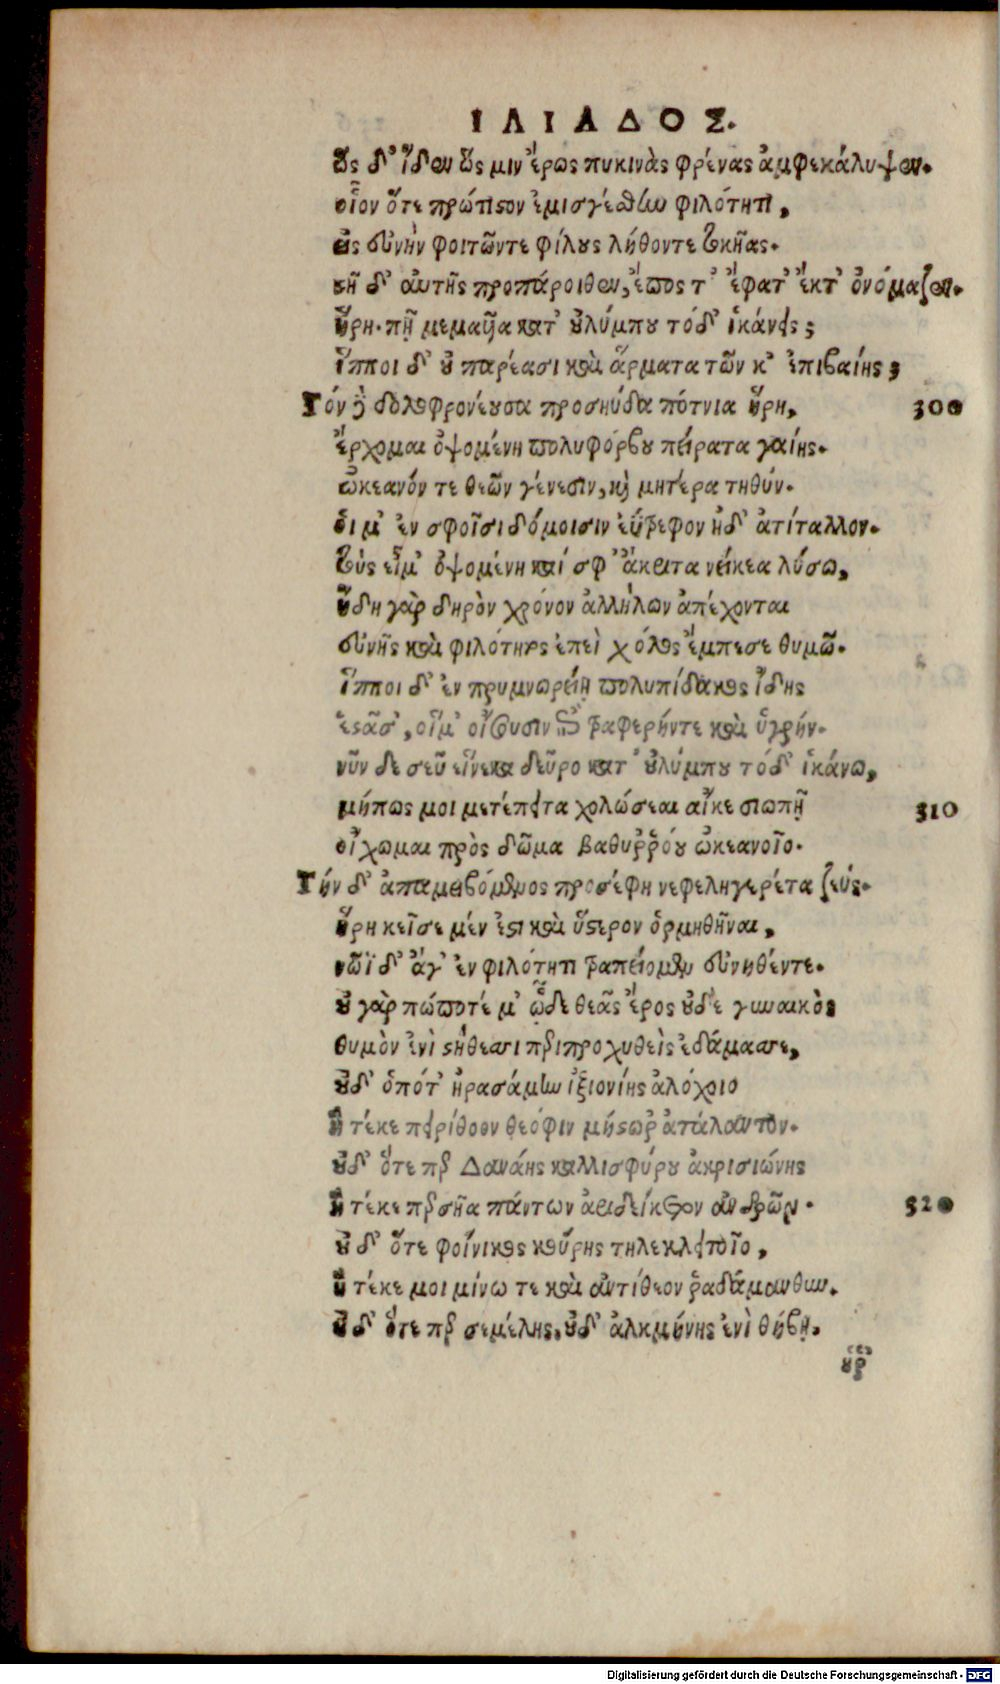 ΙΛΙΑΔΟΣ.
ὣς δ' ἴδεν ὥς μιν ἔρως πυκινὰς φρένας ἀμφεκάλυψεν.
οἷον ὅτε πρώτιστον ἐμισγέσθην φιλότητι,
εἰς εὐνὴν φοιτῶντε φίλους λήθοντε τοκῆας.
στῆ δ' αὐτῆς προπάροιθεν, ἔπος τ' ἔφατ' ἔκ τ' ὀνόμαζεν.
ἥρη. πῇ μεμαυῖα κατ' οὐλύμπου τόδ' ἱκάνεις;
ἵπποι δ' οὐ παρέασι καὶ ἅρματα τῶν κ' ἐπιβαίης;
Τὸν δὲ δολοφρονέουσα προσηύδα πότνια ἥρη, 300
ἔρχομαι ὀψομένη πολυφόρβου πείρατα γαίης.
ὠκεανόν τε θεῶν γένεσιν, καὶ μητέρα τηθύν.
οἵ μ' ἐν σφοῖσι δόμοισιν ἐΰτρεφον ἠδ' ἀτίταλλον.
τοὺς εἶμ' ὀψομένη καί σφ' ἄκριτα νείκεα λύσω,
ἤδη γὰρ δηρὸν χρόνον ἀλλήλων ἀπέχονται
εὐνῆς καὶ φιλότητος ἐπεὶ χόλος ἔμπεσε θυμῷ.
ἵπποι δ' ἐν πρυμνωρείῃ πολυπίδακος ἴδης
ἑστᾶσ', οἵ μ' οἴσουσιν ἐπὶ τραφερήν τε καὶ ὑγρήν.
νῦν δε σεῦ εἵνεκα δεῦρο κατ' οὐλύμπου τόδ' ἱκάνω,
μήπως μοι μετέπειτα χολώσεαι αἴκε σιωπῇ 310
οἴχωμαι πρὸς δῶμα βαθυῤῥόου ὠκεανοῖο.
Τὴν δ' ἀπαμειβόμενος προσέφη νεφεληγερέτα ζεύς.
ἥρη κεῖσε μέν ἐστι καὶ ὕστερον ὁρμηθῆναι,
νῶϊ δ' ἄγ' ἐν φιλότητι τραπείομεν εὐνηθέντε.
οὐ γὰρ πώποτέ μ' ὧδε θεᾶς ἔρος οὐδὲ γυναικὸς
θυμὸν ἐνὶ στήθεσσι περιπροχυθεὶς ἐδάμασσε,
οὐδ' ὁπότ' ἠρασάμην ἰξιονίης ἀλόχοιο
ἣ τέκε πειρίθοον θεόφιν μήστωρ' ἀτάλαντον.
οὐδ' ὅτε περ Δανάης καλλισφύρου ἀκρισιώνης
ἣ τέκε περσῆα πάντων ἀριδείκετον ἀνδρῶν. 320
οὐδ' ὅτε φοίνικος κούρης τηλεκλειτοῖο,
ἣ τέκε μοι μίνω τε καὶ ἀντίθεον ῥαδάμανθυν.
οὐδ' ὅτε περ σεμέλης, οὐδ' ἀλκμήνης ἐνὶ θήβῃ.
Digitalisierung gefördert durch die Deutsche Forschungsgemeinschaft - DFG